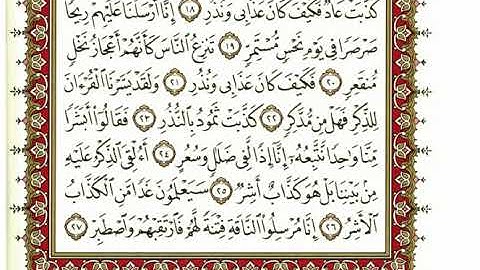 كَذَّبَتْ عَادٌ فَكَيْفَ كَانَ عَذَابِى وَنُذُرِ ١٨ إِنَّا أَرْسَلْنَا عَلَيْهِمْ رِيحًا
صَرْصَرًا فِى يَوْمِ نَحْسٍ مُّسْتَمِرٍّ ١٩ تَنزِعُ النَّاسَ كَأَنَّهُمْ أَعْجَازُ نَخْلٍ
مُّنقَعِرٍ ٢٠ فَكَيْفَ كَانَ عَذَابِى وَنُذُرِ ٢١ وَلَقَدْ يَسَّرْنَا الْقُرْءَانَ
لِلذِّكْرِ فَهَلْ مِن مُّدَّكِرٍ ٢٢ كَذَّبَتْ ثَمُودُ بِالنُّذُرِ ٢٣ فَقَالُوٓا۟ أَبَشَرًا
مِّنَّا وَٰحِدًا نَّتَّبِعُهُۥٓ إِنَّآ إِذًا لَّفِى ضَلَٰلٍ وَسُعُرٍ ٢٤ أَءُلْقِىَ الذِّكْرُ عَلَيْهِ
مِنۢ بَيْنِنَا بَلْ هُوَ كَذَّابٌ أَشِرٌ ٢٥ سَيَعْلَمُونَ غَدًا مَّنِ الْكَذَّابُ
الْأَشِرُ ٢٦ إِنَّا مُرْسِلُوا۟ النَّاقَةِ فِتْنَةً لَّهُمْ فَارْتَقِبْهُمْ وَاصْطَبِرْ ٢٧